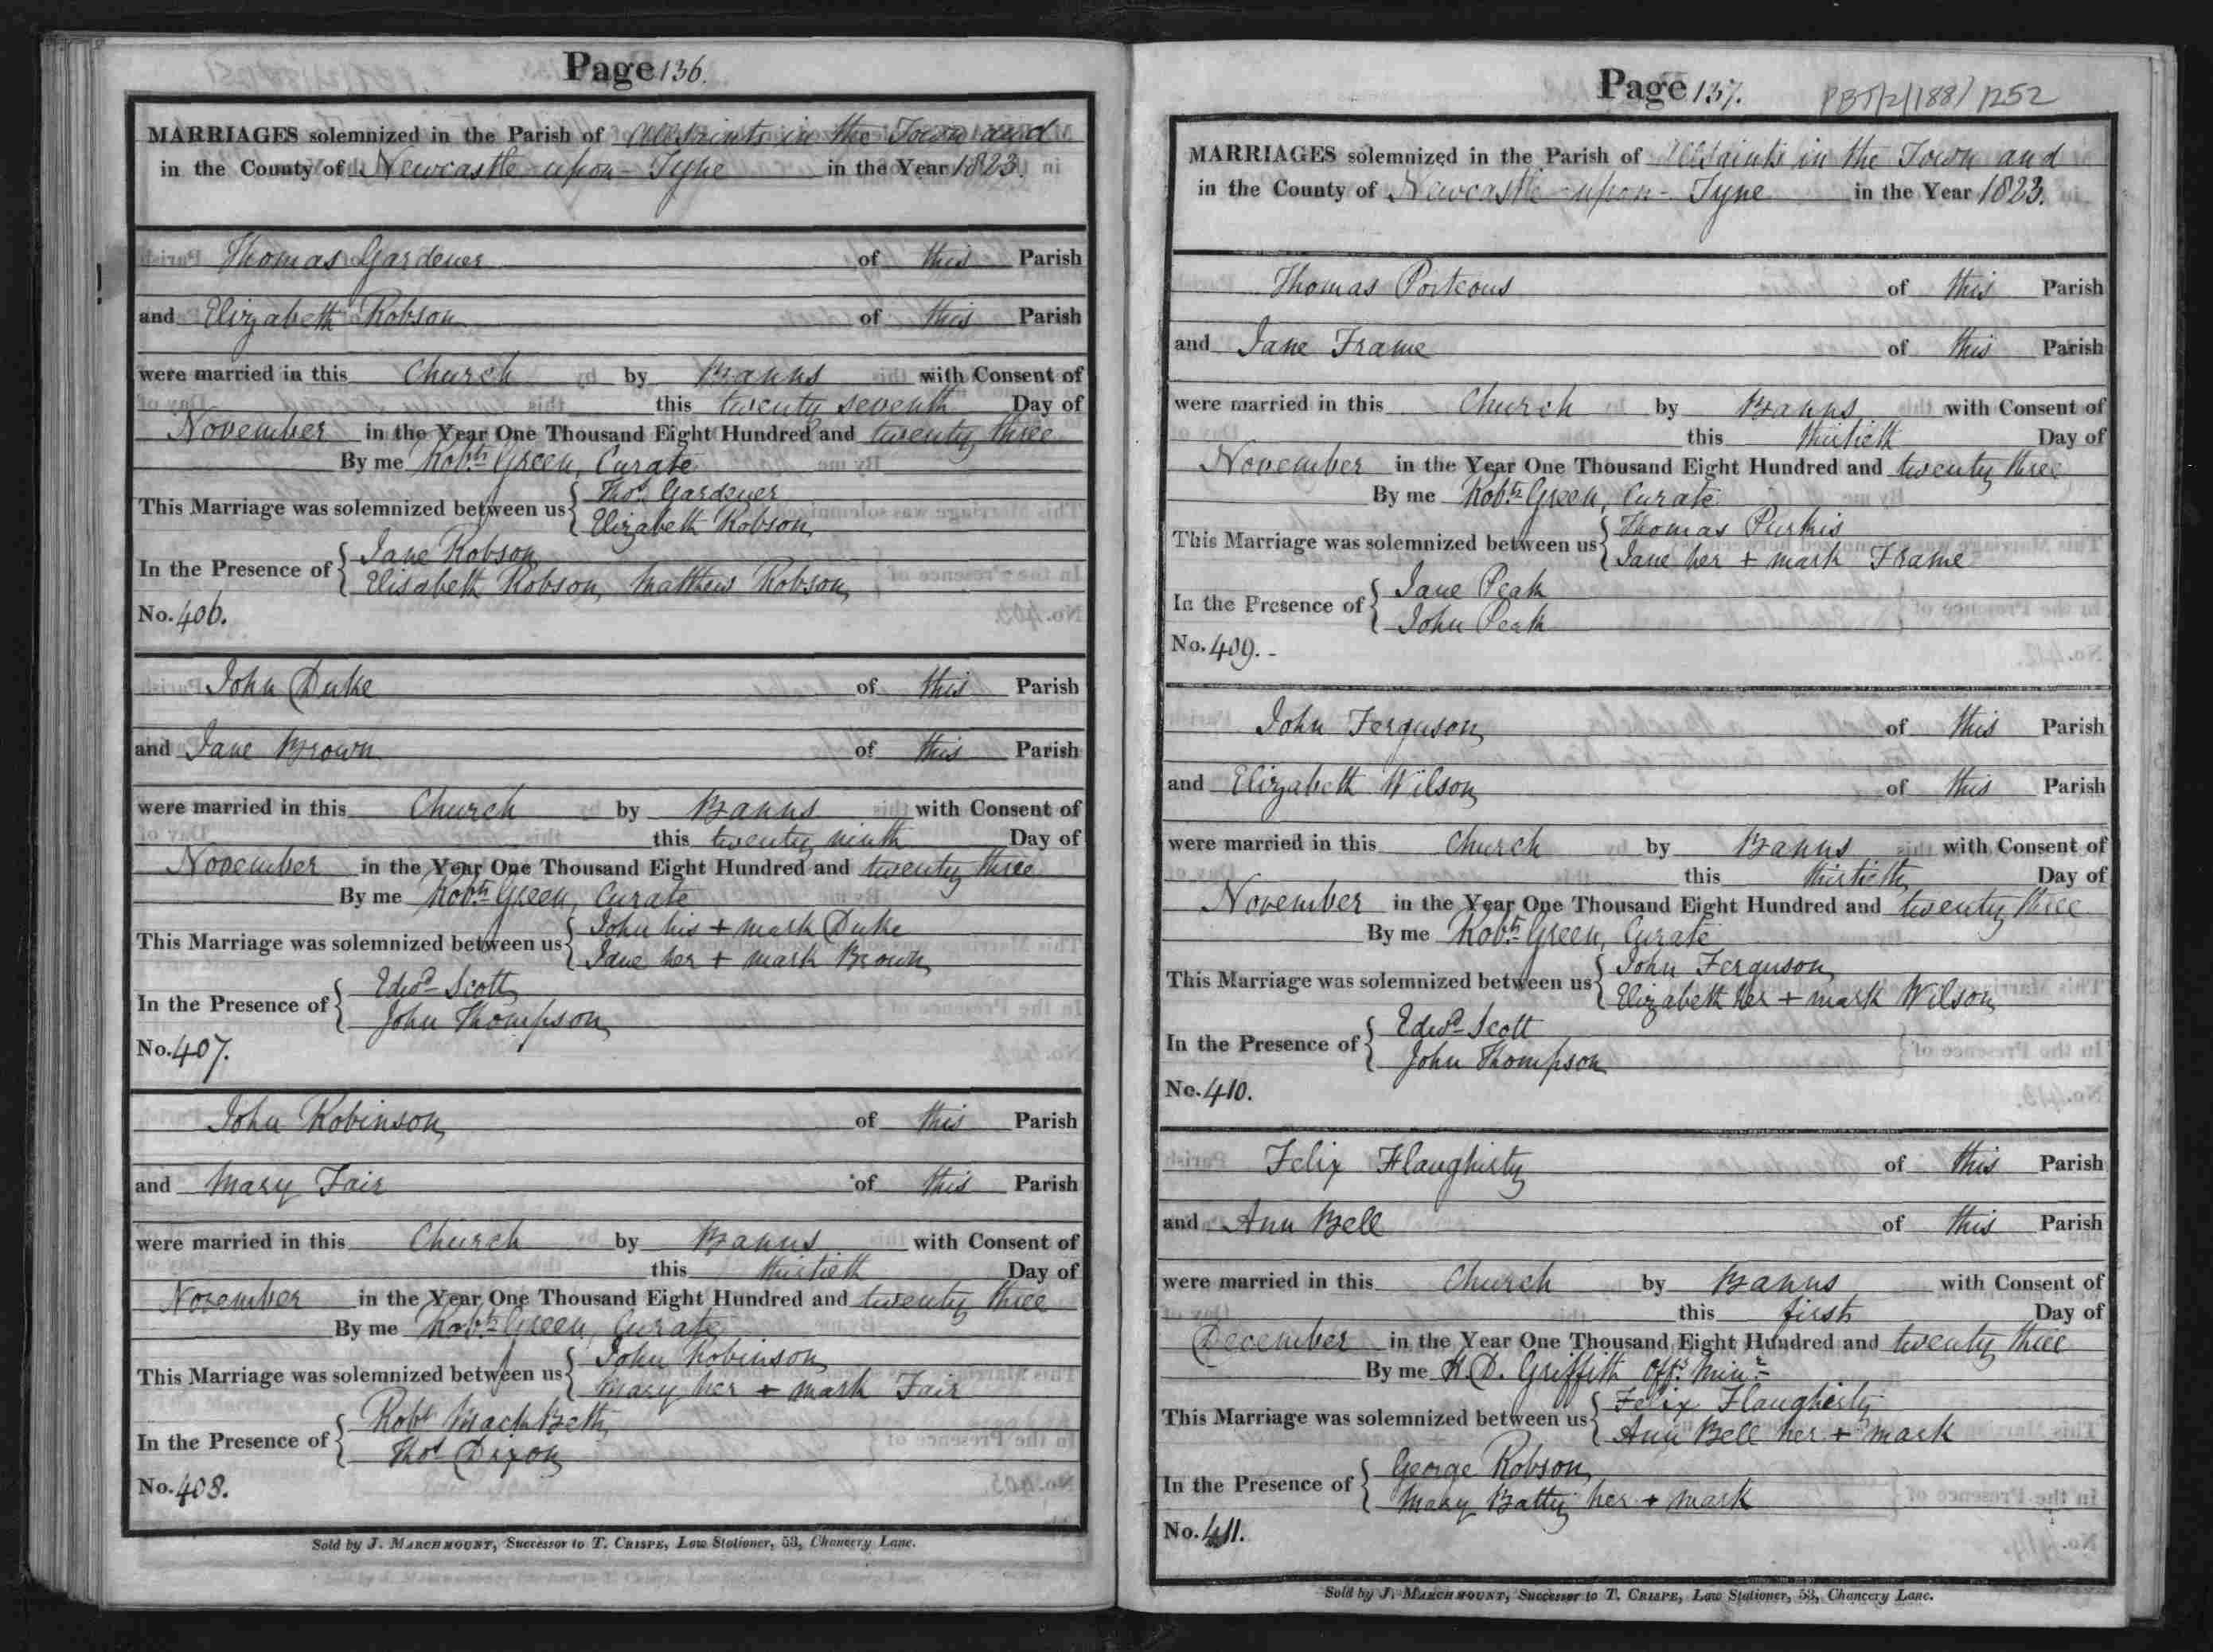 Page 136.
MARRIAGES solemnized in the Parish of Allsaints in the Town and
in the County of Newcastle-upon-Tyne in the Year 1823.
Thomas Gardener of this Parish
and Elizabeth Robson of this Parish
were married in this Church by Banns with Consent of
this twenty seventh Day of
November in the Year One Thousand Eight Hundred and twenty three
By me Robt. Green, Curate
This Marriage was solemnized between us { Thos. Gardener
Elizabeth Robson
In the Presence of { Jane Robson
Elisabeth Robson, Matthew Robson
No. 406.
John Duke of this Parish
and Jane Brown of this Parish
were married in this Church by Banns with Consent of
this twenty ninth Day of
November in the Year One Thousand Eight Hundred and twenty three
By me Robt. Green, Curate
This Marriage was solemnized between us { John his + mark Duke
Jane her + mark Brown
In the Presence of { Edwd. Scott
John Thompson
No. 407.
John Robinson of this Parish
and Mary Fair of this Parish
were married in this Church by Banns with Consent of
this thirtieth Day of
November in the Year One Thousand Eight Hundred and twenty three
By me Robt. Green, Curate
This Marriage was solemnized between us { John Robinson
Mary her + mark Fair
In the Presence of { Robt MackBeth
Thos Dixon
No. 408.
Sold by J. MARCHMOUNT, Successor to T. CRISPE, Law Stationer, 53, Chancery Lane.
Page 137.
PBT/2/188/1252
MARRIAGES solemnized in the Parish of Allsaints in the Town and
in the County of Newcastle-upon-Tyne in the Year 1823.
Thomas Porteous of this Parish
and Jane Frame of this Parish
were married in this Church by Banns with Consent of
this thirtieth Day of
November in the Year One Thousand Eight Hundred and twenty three
By me Robt. Green, Curate
This Marriage was solemnized between us { Thomas Purkis
Jane her + mark Frame
In the Presence of { Jane Peak
John Peak
No. 409.-
John Ferguson of this Parish
and Elizabeth Wilson of this Parish
were married in this Church by Banns with Consent of
this thirtieth Day of
November in the Year One Thousand Eight Hundred and twenty three
By me Robt. Green, Curate
This Marriage was solemnized between us { John Ferguson
Elizabeth her + mark Wilson
In the Presence of { Edwd. Scott
John Thompson
No. 410.
Felix Flaugherty of this Parish
and Ann Bell of this Parish
were married in this Church by Banns with Consent of
this first Day of
December in the Year One Thousand Eight Hundred and twenty three
By me H. D. Griffith Offg. Minr.
This Marriage was solemnized between us { Felix Flaugherty
Ann Bell her + mark
In the Presence of { George Robson
Mary Batty her + mark
No. 411.
Sold by J. MARCHMOUNT, Successor to T. CRISPE, Law Stationer, 53, Chancery Lane.